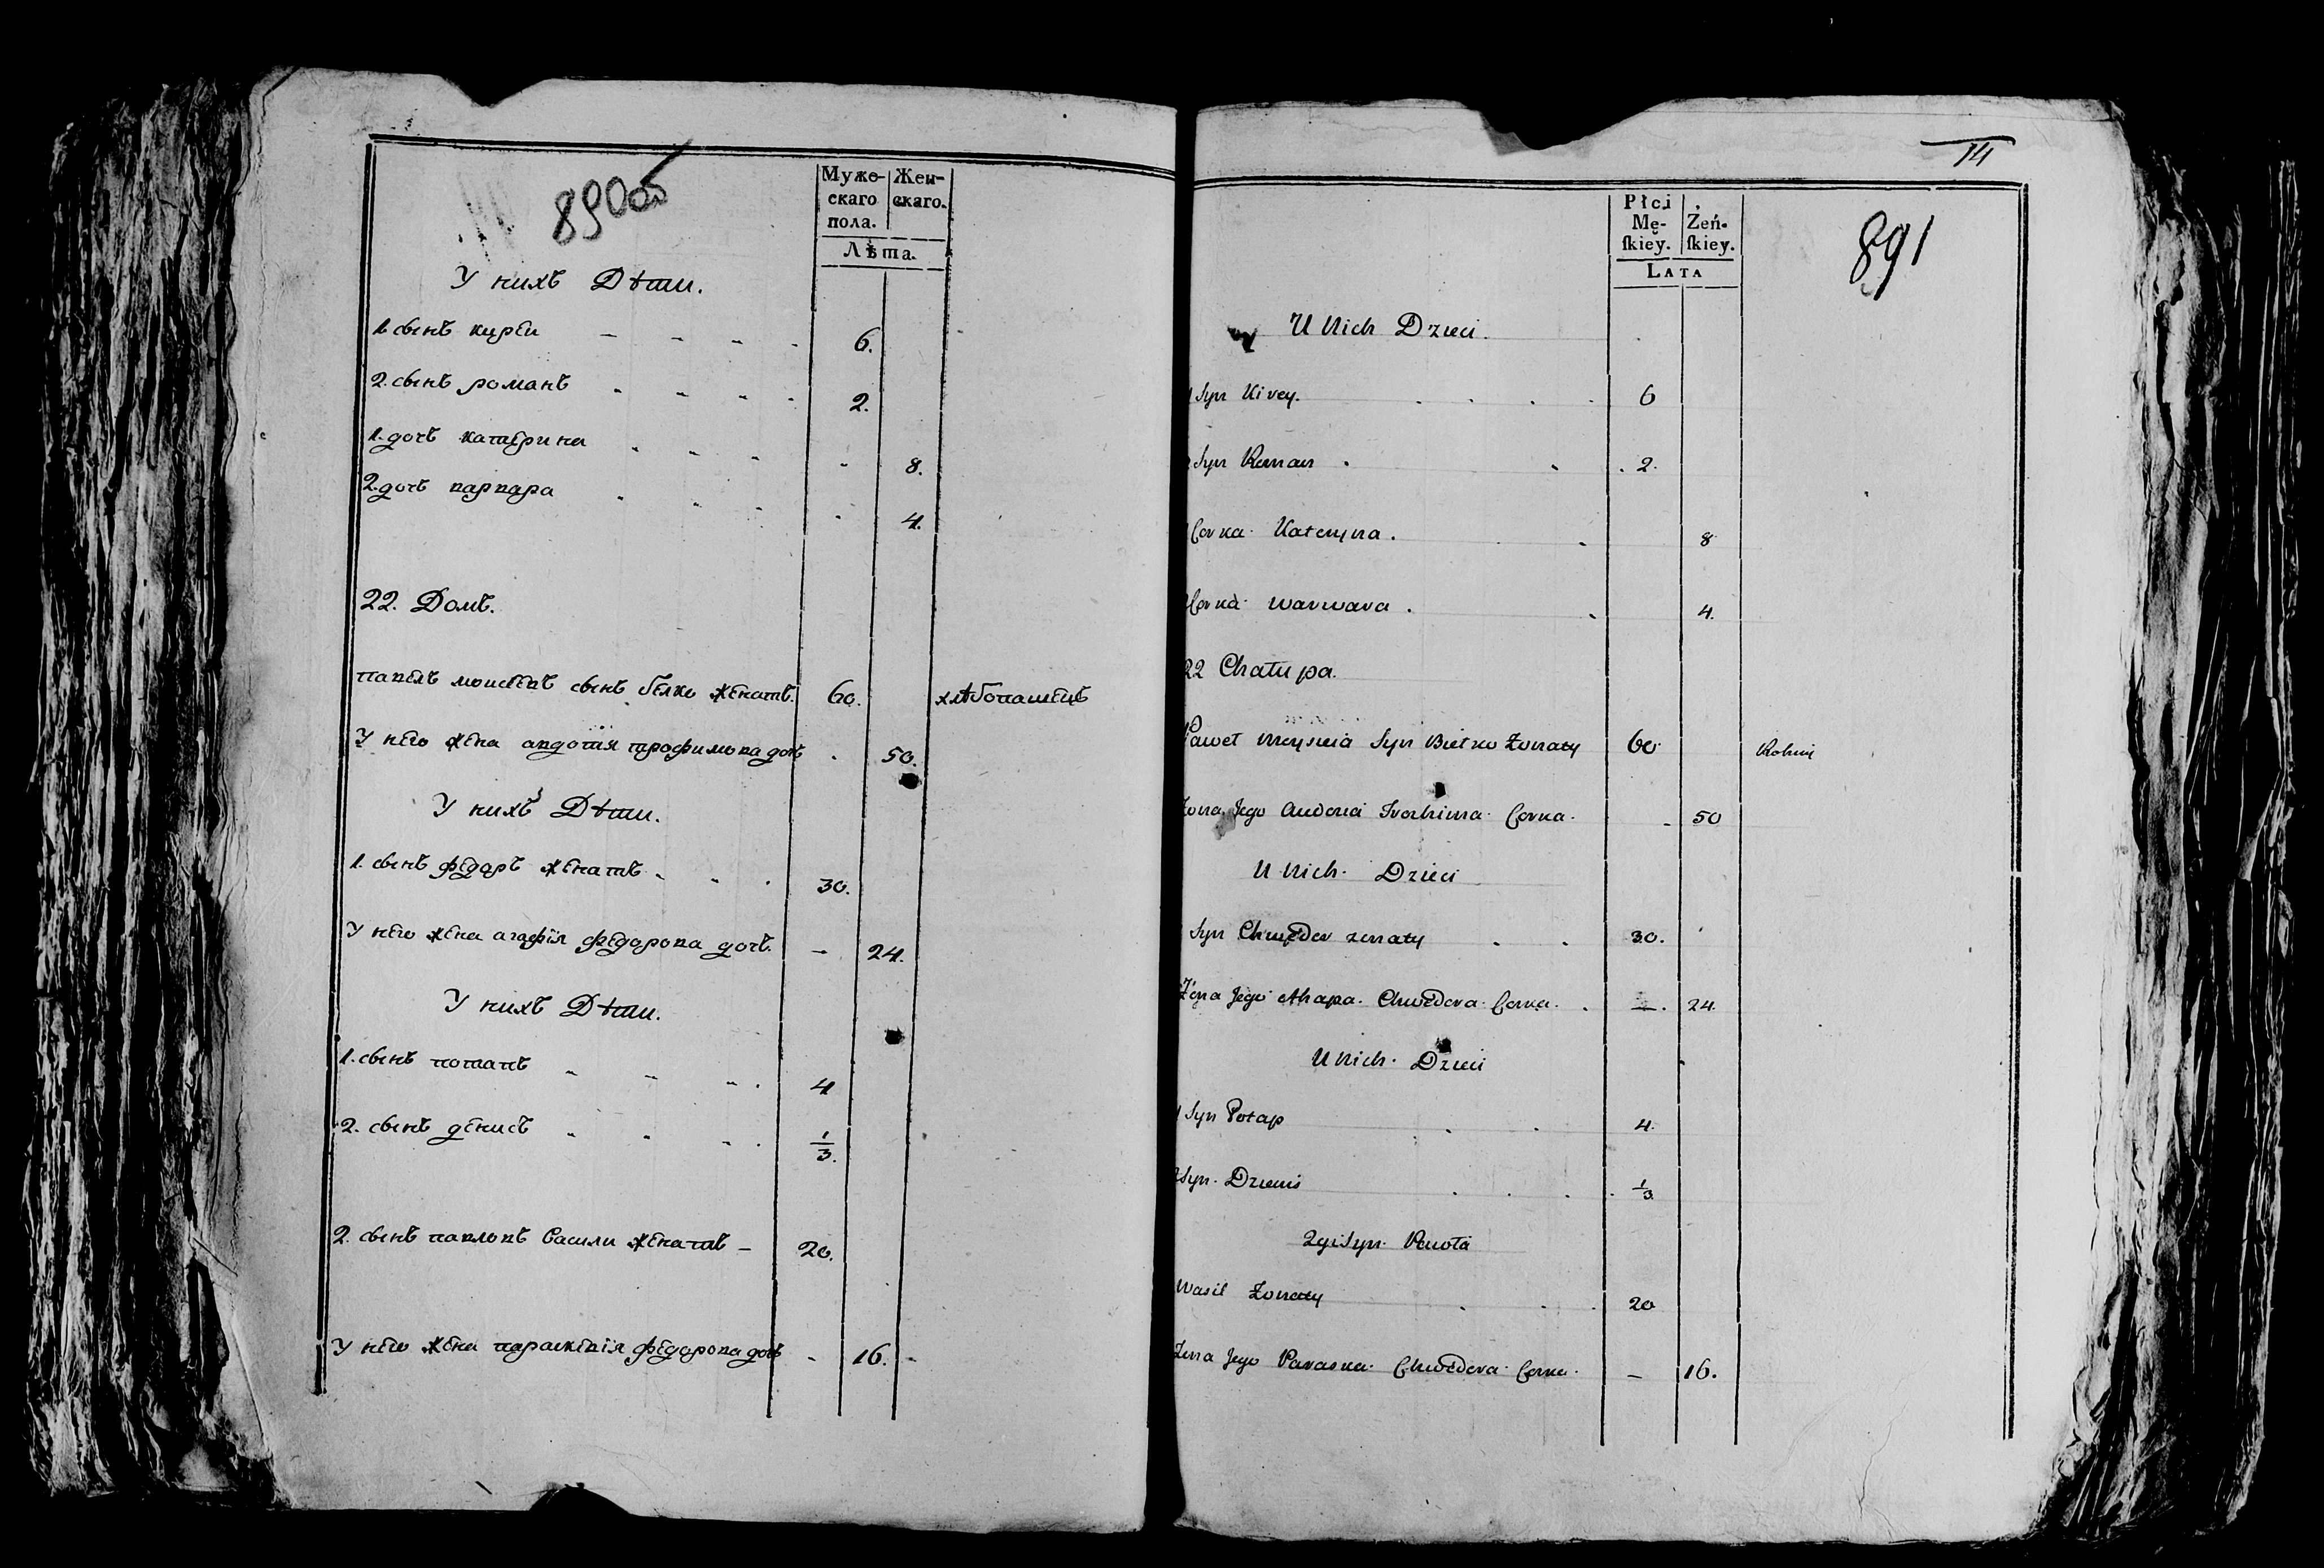 890об
Муже-
скаго
пола.
Жен-
скаго.
Лѣта.
У нихъ Дѣти.
1. сынъ кирей 6.
2. сынъ романъ 2.
1. дочь катерина 8.
2. дочь варвара 4.
22. Домъ.
павелъ моисеевъ сынъ белко женатъ. 60. хлѣбопашецъ
У него жена авдотія трофимова дочь 50.
У нихъ Дѣти.
1. сынъ федаръ женатъ 30.
У него жена агафія федорова дочь. 24.
У нихъ Дѣти.
1. сынъ потапъ 4
2. сынъ денисъ 1/3.
2. сынъ павловъ васили женатъ 20.
У него жена параскевія федорова дочь 16.
14
891
Płci
Mę-
ſkiey.
Żeń-
ſkiey.
LATA
U Nich Dzieci.
1 Syn Kirey. 6
2 Syn Roman 2.
Corka Kateryna. 8
Corka warwara. 4.
22 Chałupa.
Paweł Syn Bielko Żonaty 60
Żona Jego Corka. 50
U Nich Dzieci
Syn Chwedor zonaty 30.
Żona Jego Ahapa. Chwedora Corka. 24.
U Nich Dzieci
1 Syn Potap 4.
2 Syn Dzienis 1/3
2gi Syn
Wasil Żonaty 20
Żona Jego Paraska Chwedora Corka. 16.